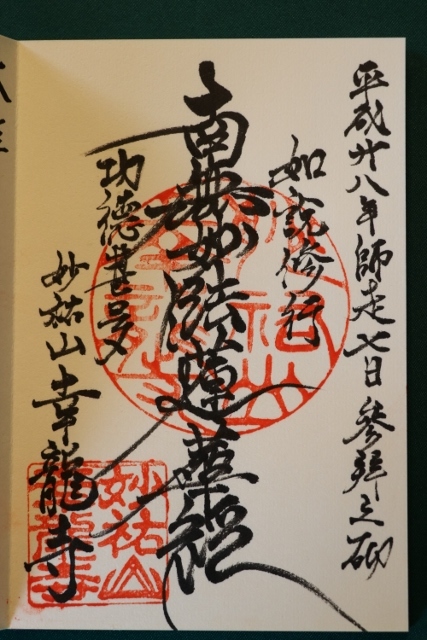 平成廿八年師走七日参拜之砌
如説修行
南無妙法蓮華経
功徳甚多
妙祐山幸龍寺
妙祐山
幸龍寺